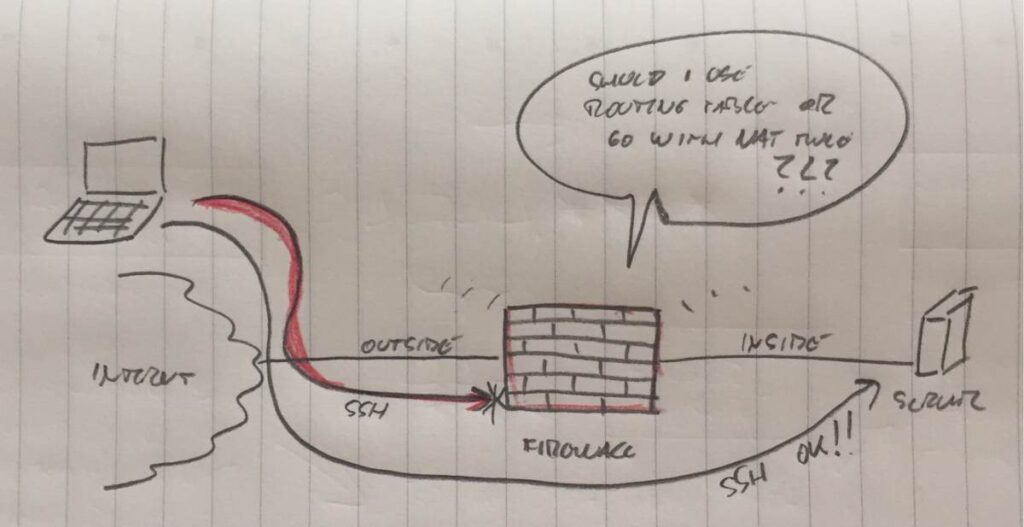 SHOULD I USE
ROUTING TABLE OR
GO WITH NAT RULE
???
OUTSIDE
INSIDE
INTERNET
SSH
SERVER
OK!!
FIREWALL
SSH